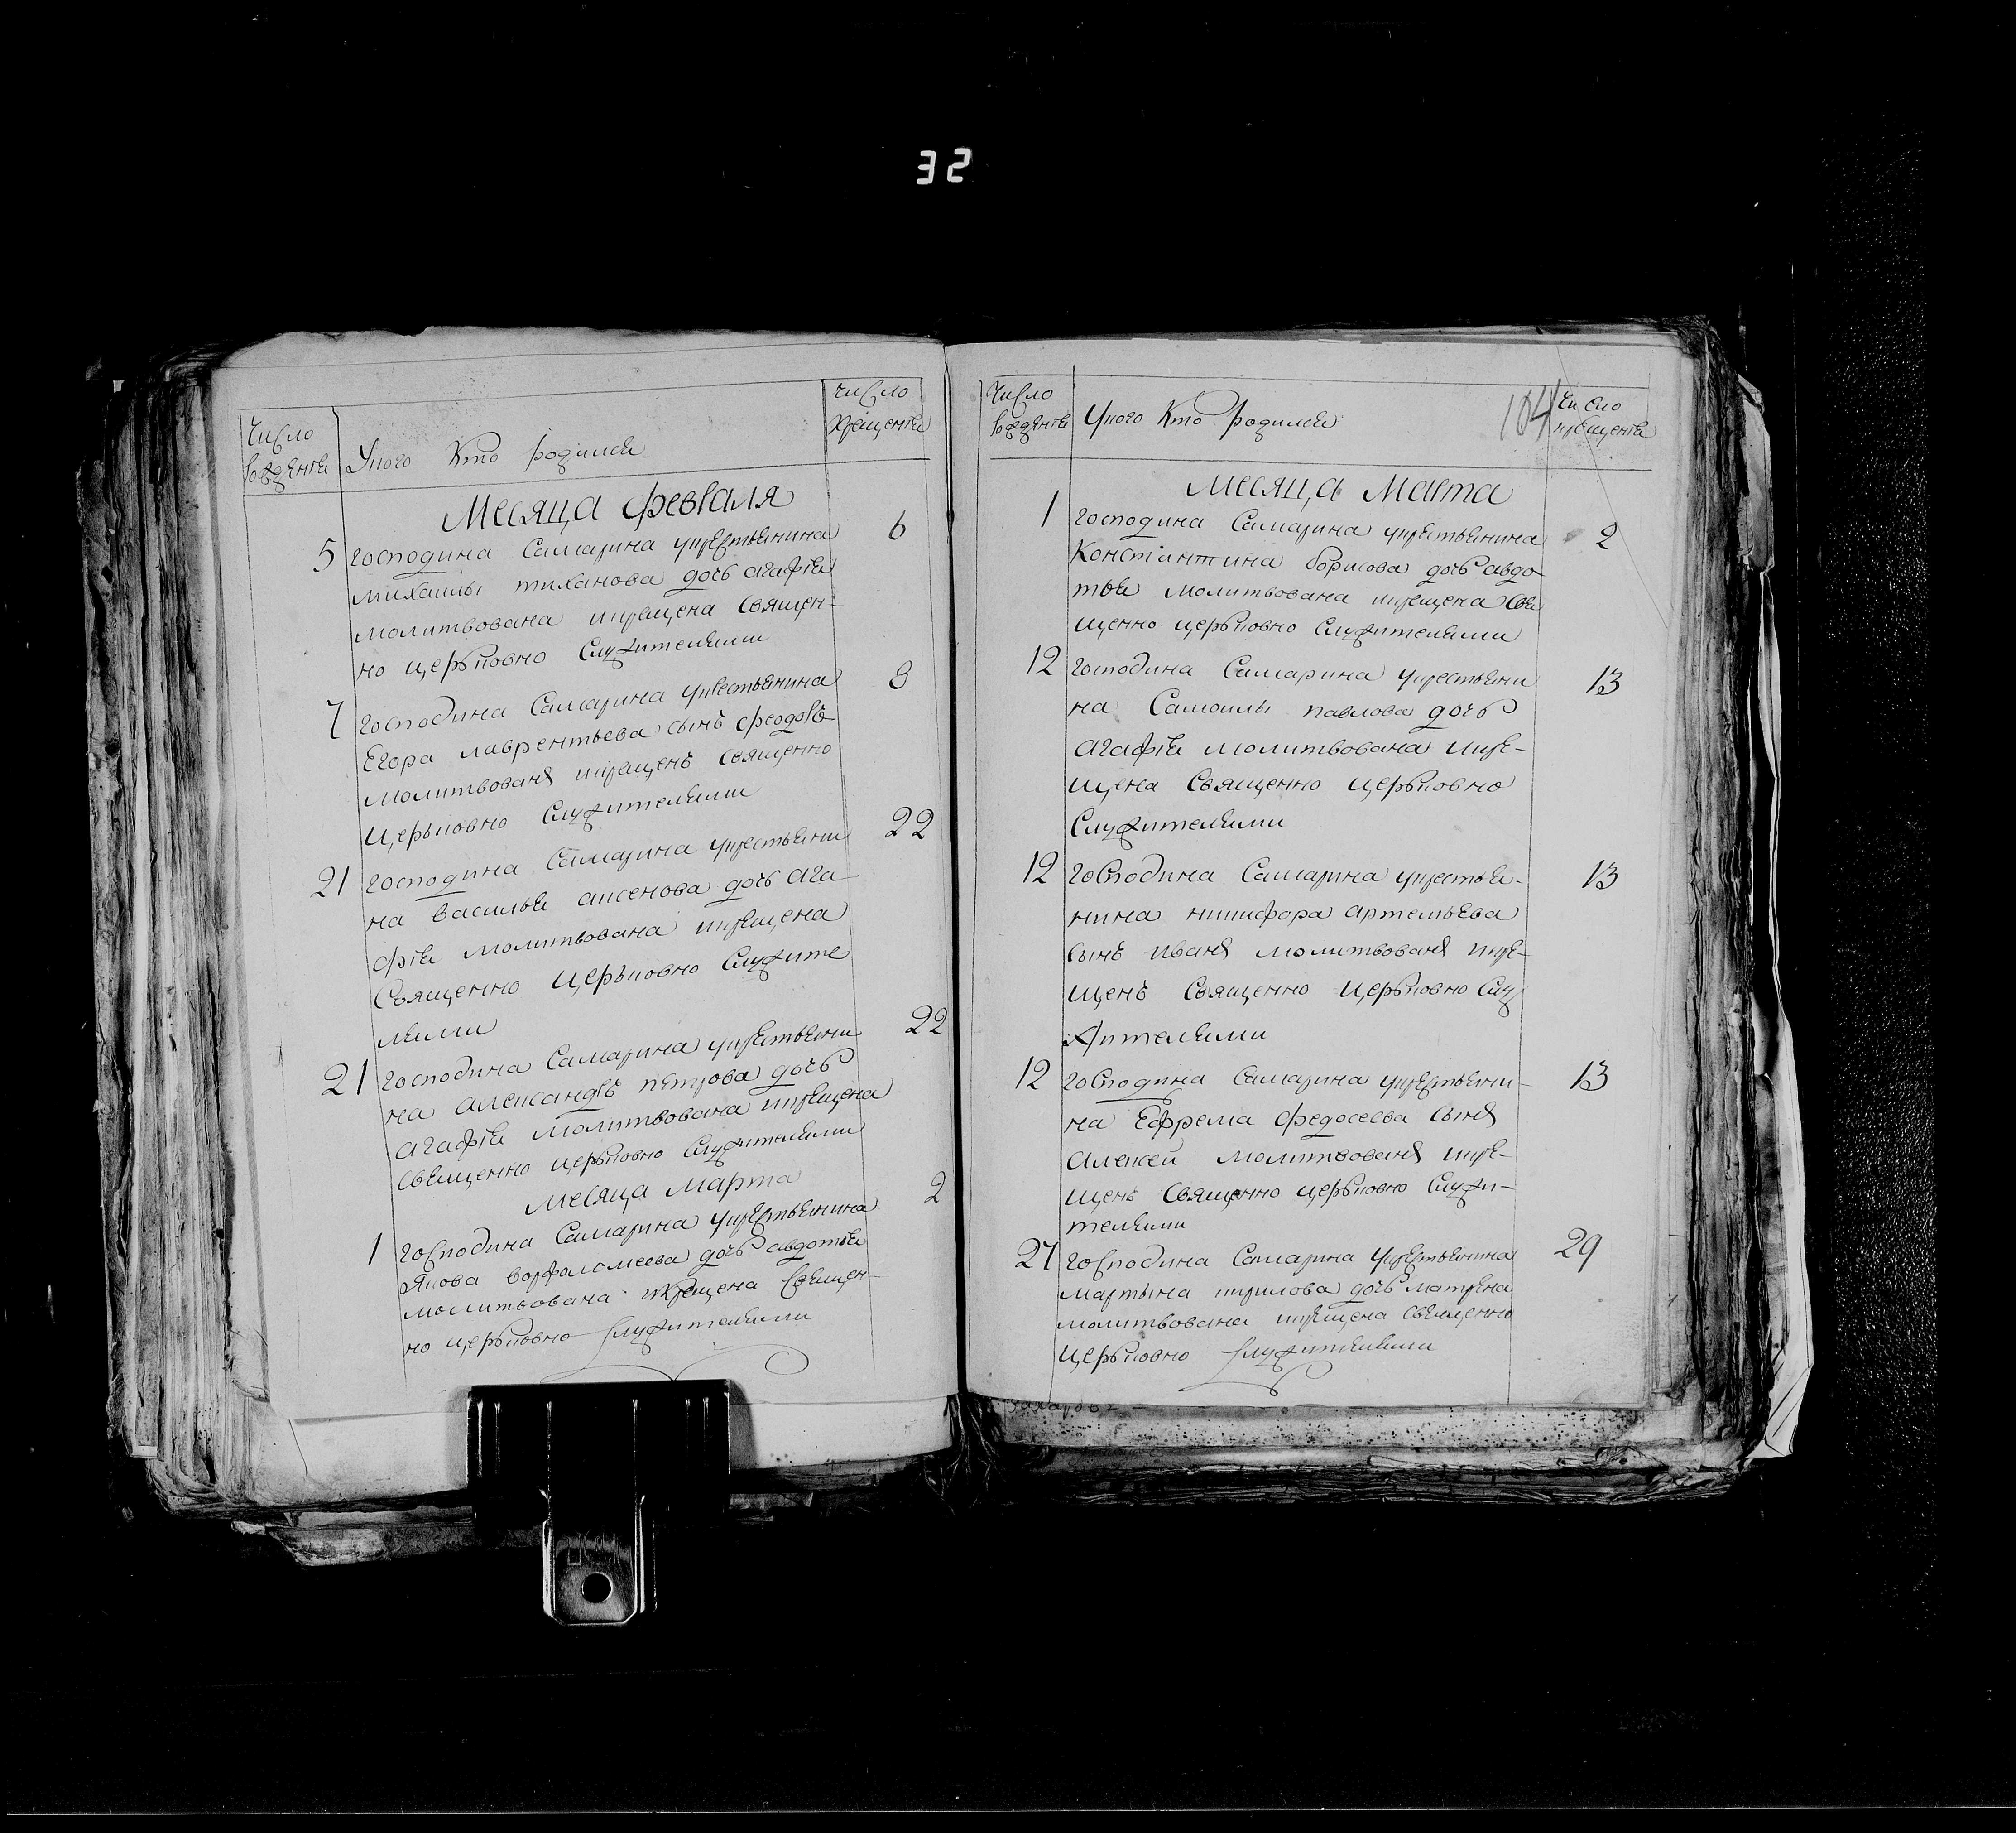 32
Число рожденiя
Укого Кто родился
число крещенiя
Месяца февраля
5 господина Самарина укрестьянина 6
михаилы тиханова дочь агафiя
молитвована икрещена священ-
но церьковно Служителями
7 господина Самарина укрестьянина 8
Егора лаврентьева сынъ феодоръ
молитвованъ икрещенъ священно
церьковно Служителями
21 господина Самарина укрестьяни 22
на василья аксенова дочь ага-
фiя молитвована икрещена
Священно церьковно Служите
лями
21 господина Самарина укрестьяни 22
на александръ петрова дочь
агафiя молитвована икрещена
свещенно церьковно Служителями
месяца марта
1 господина Самарина укрестьянина 2
якова ворфоломеева дочь авдотья
молитвована икрещена священ-
но церьковно Служителями
Число рожденiя
Укого Кто родился
104
число крещенiя
Месяца Марта
1 господина Самарина укрестьянина 2
Константина борисова дочь авдо-
тья молитвована икрещена свя
щенно церьковно Служителями
12 господина Самарина укрестьяни 13
на Самоилы павлова дочь
агафiя молитвована икре-
щена Священно церьковно
Служителями
12 господина Самарина укрестья- 13
нина никифора артемьева
сынъ иванъ молитвованъ икре-
щенъ Священно церьковно Слу
жителями
12 господина Самарина укрестьяни- 13
на Ефрема федосеева сынъ
алексей молитвованъ икре-
щенъ Священно церьковно Служи-
телями
27 господина Самарина укрестьянина 29
мартына кирилова дочь матрена
молитвована икрещена священно
церьковно Служителями